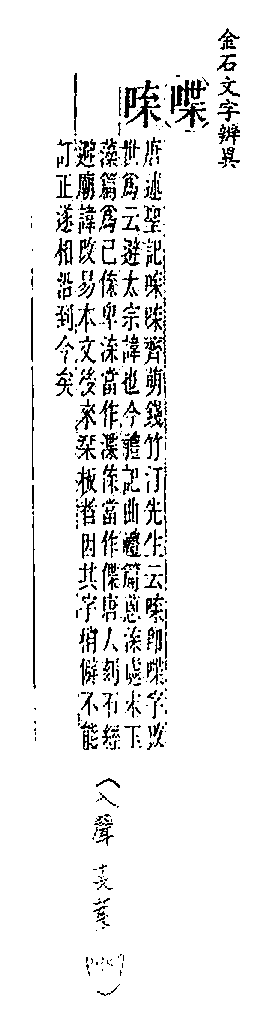 金石文字辨異
喋
㖼
唐述聖記㖼㖼齊萌錢竹汀先生云㖼卽喋字改
世爲云避太宗諱也今禮記曲禮篇葱㳿處末玉
藻篇爲已傑卑㳿當作渫傑當作傑唐人刻石經
避廟諱改易本文後來槧板皆因其字稍僻不能
訂正遂相沿到今矣
入聲 葉